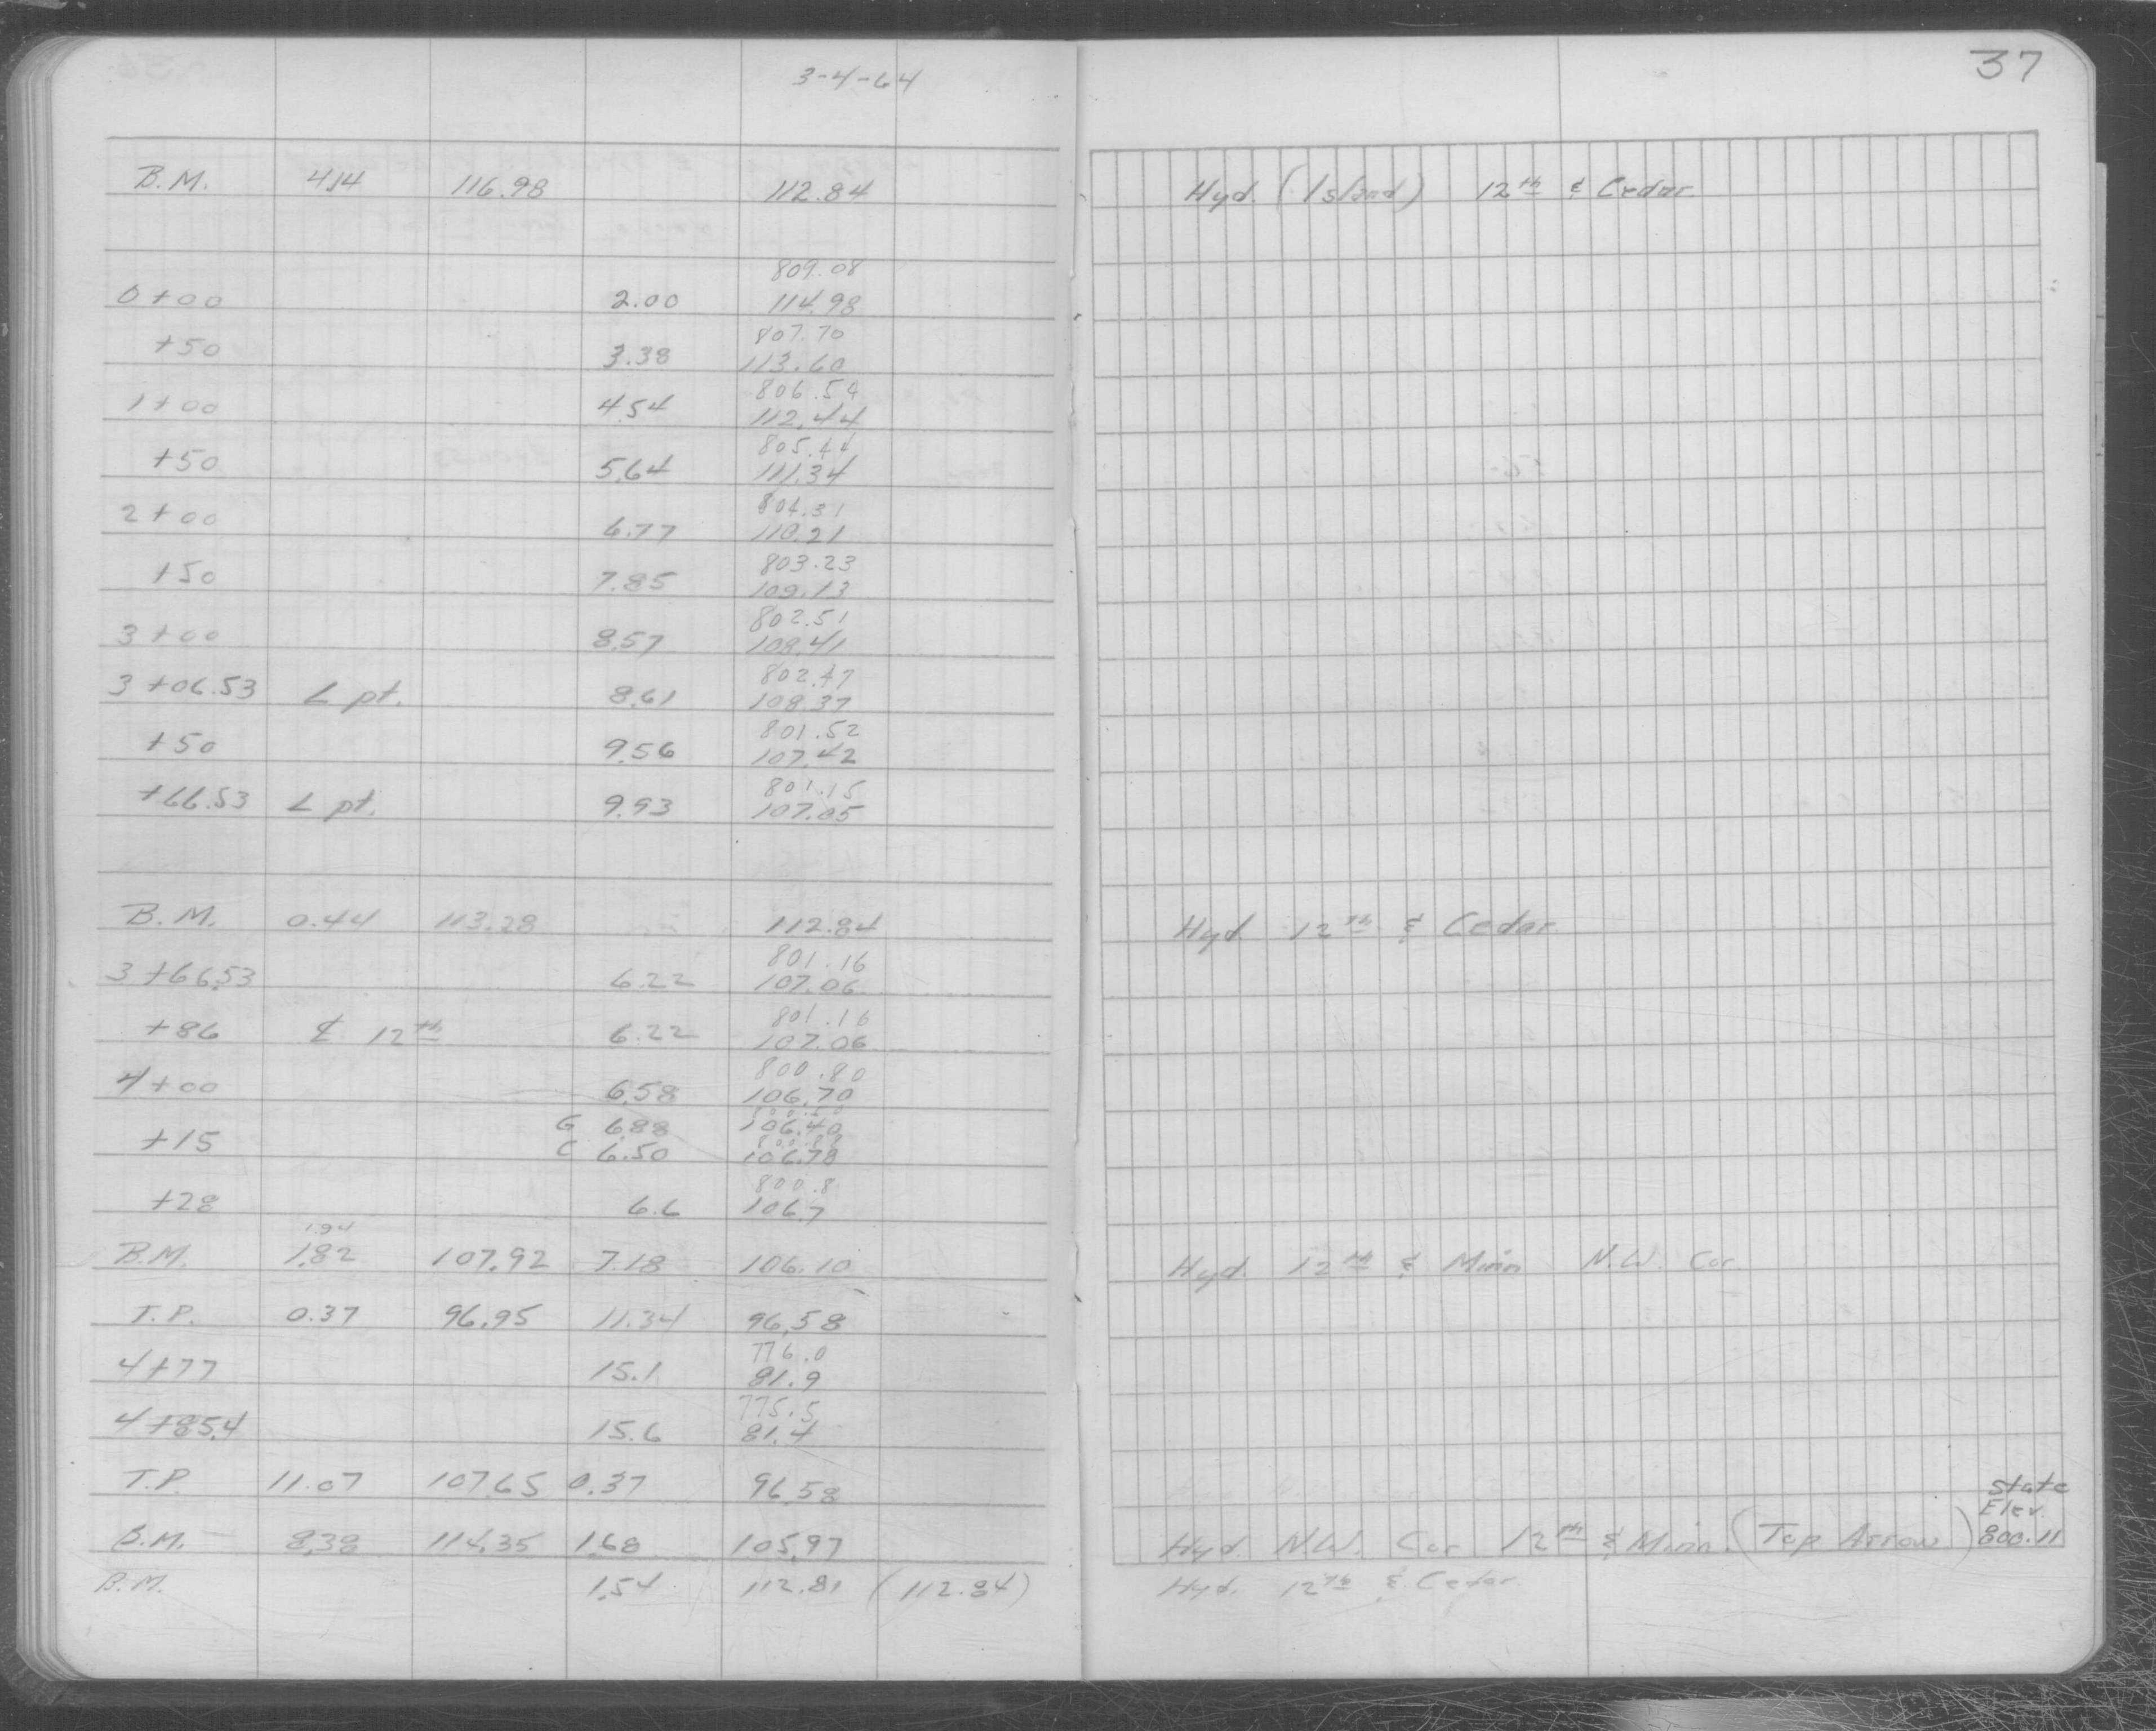 3-4-64
37
B.M. 4.14 116.98 112.84 Hyd. (Island) 12th & Cedar
809.08
0+00 2.00 114.98
807.70
+50 3.38 113.60
806.54
1+00 4.54 112.44
805.44
+50 5.64 111.34
804.31
2+00 6.77 110.21
803.23
+50 7.85 109.13
802.51
3+00 8.57 108.41
802.47
3+06.53 L pt. 8.61 108.37
801.52
+50 9.56 107.42
801.15
+66.53 L pt. 9.93 107.05
B.M. 0.44 113.28 112.84 Hyd 12th & Cedar
801.16
3+66.53 6.22 107.06
801.16
+86 ℄ 12th 6.22 107.06
800.80
4+00 6.58 106.70
G 6.88 106.40
800.88
+15 C 6.50 106.78
800.8
+28 6.6 106.7
1.94
B.M. 1.82 107.92 7.18 106.10 Hyd. 12th & Minn N.W. Cor.
T.P. 0.37 96.95 11.34 96.58
776.0
4+77 15.1 81.9
775.5
4+85.4 15.6 81.4
T.P. 11.07 107.65 0.37 96.58
State
Elev.
B.M. 8.38 114.35 1.68 105.97 Hyd. N.W. Cor 12th & Minn. (Top Arrow) 800.11
B.M. 1.54 112.81 (112.84) Hyd. 12th & Cedar